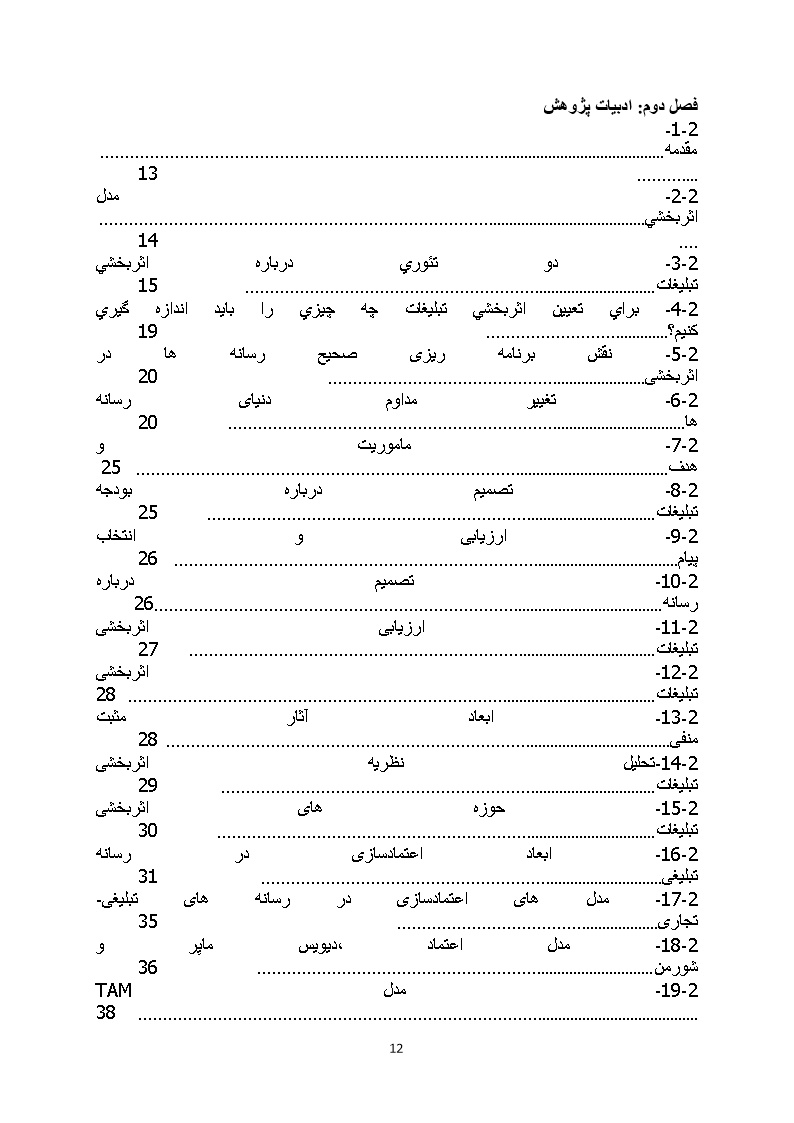 فصل دوم: ادبیات پژوهش
2-1-
مقدمه................................................................................................................
............ 13
2-2- مدل
اثربخشي..............................................................................................................
.... 14
2-3- دو تئوري درباره اثربخشي
تبليغات.................................................................................... 15
2-4- براي تعيين اثربخشي تبليغات چه چيزي را بايد اندازه گيري
كنيم؟..................................... 19
2-5- نقش برنامه ریزی صحیح رسانه ها در
اثربخشی................................................................ 20
2-6- تغییر مداوم دنیای رسانه
ها............................................................................................ 20
2-7- ماموریت و
هدف........................................................................................................... 25
2-8- تصمیم درباره بودجه
تبلیغات.......................................................................................... 25
2-9- ارزیابی و انتخاب
پیام..................................................................................................... 26
2-10- تصمیم درباره
رسانه......................................................................................................26
2-11- ارزیابی اثربخشی
تبلیغات.............................................................................................. 27
2-12- اثربخشی
تبلیغات.......................................................................................................... 28
2-13- ابعاد آثار مثبت
منفی...................................................................................................... 28
2-14-تحلیل نظریه اثربخشی
تبلیغات........................................................................................ 29
2-15- حوزه های اثربخشی
تبلیغات........................................................................................ 30
2-16- ابعاد اعتمادسازی در رسانه
تبلیغی................................................................................. 31
2-17- مدل های اعتمادسازی در رسانه های تبلیغی-
تجاری............................................................. 35
2-18- مدل اعتماد ،دیویس مایِر و
شورمن................................................................................ 36
2-19- مدل TAM
................................................................................................................ 38
12